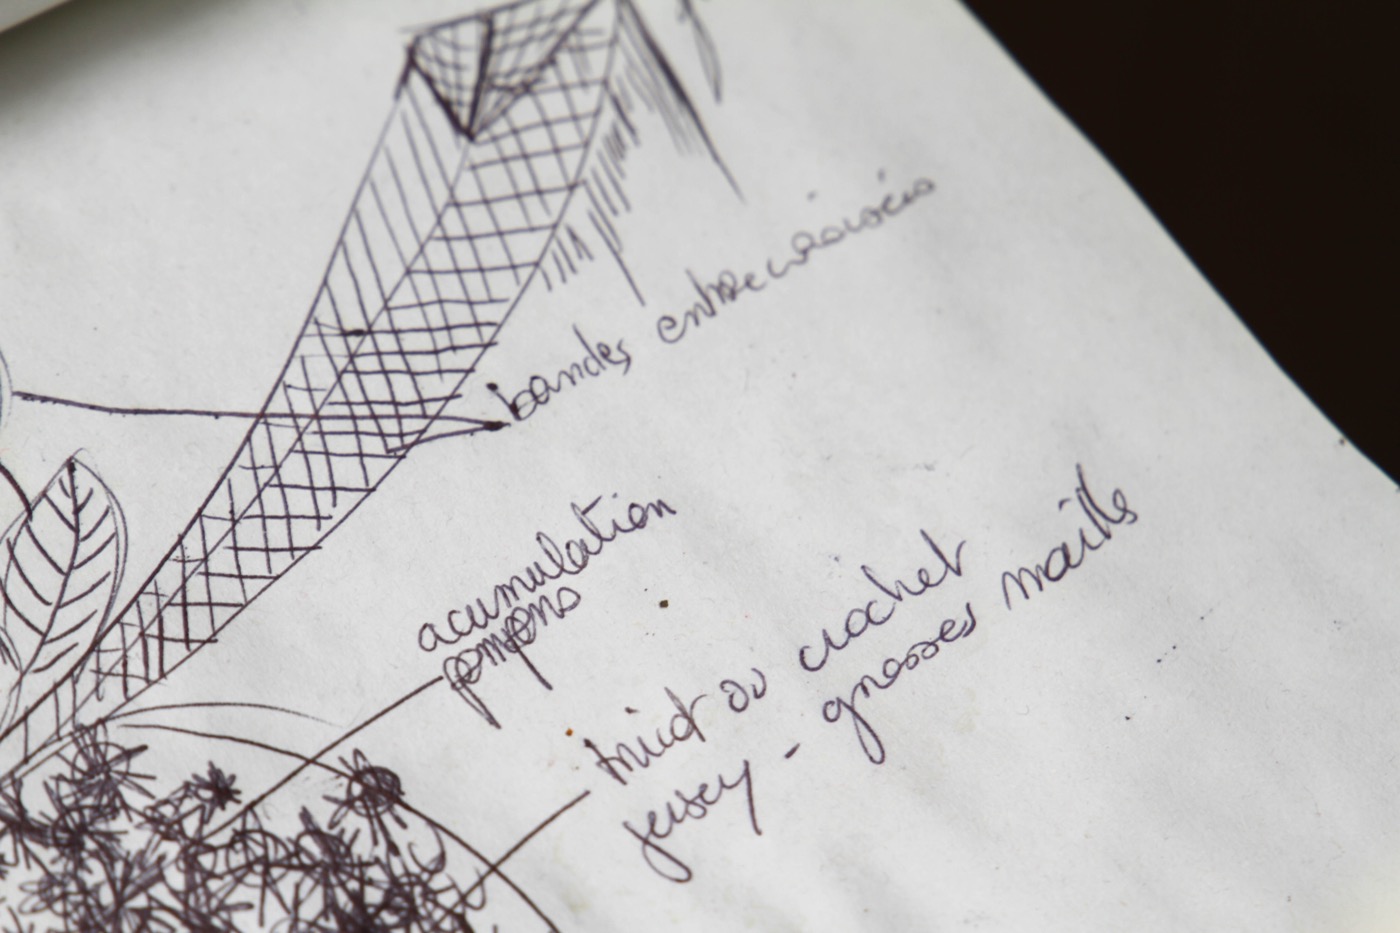 bandes entrecroisées
acumulation
pompons
tricot ou crochet
jersey - grosses mailles